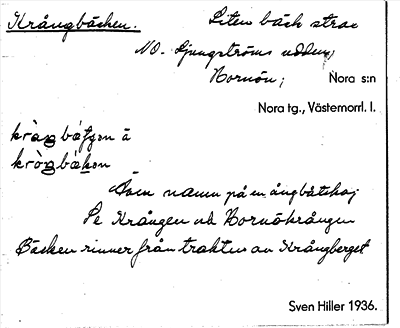 Krångbäcken.
Liten bäck strax
NO. Ljungströms udden,
Hornön; Nora s:n
Nora tg., Västernorrl. l.
Även namn på en ångbåtskaj
Se Krången och Hornökrången
Bäcken rinner från trakten av Krångberget
Sven Hiller 1936.